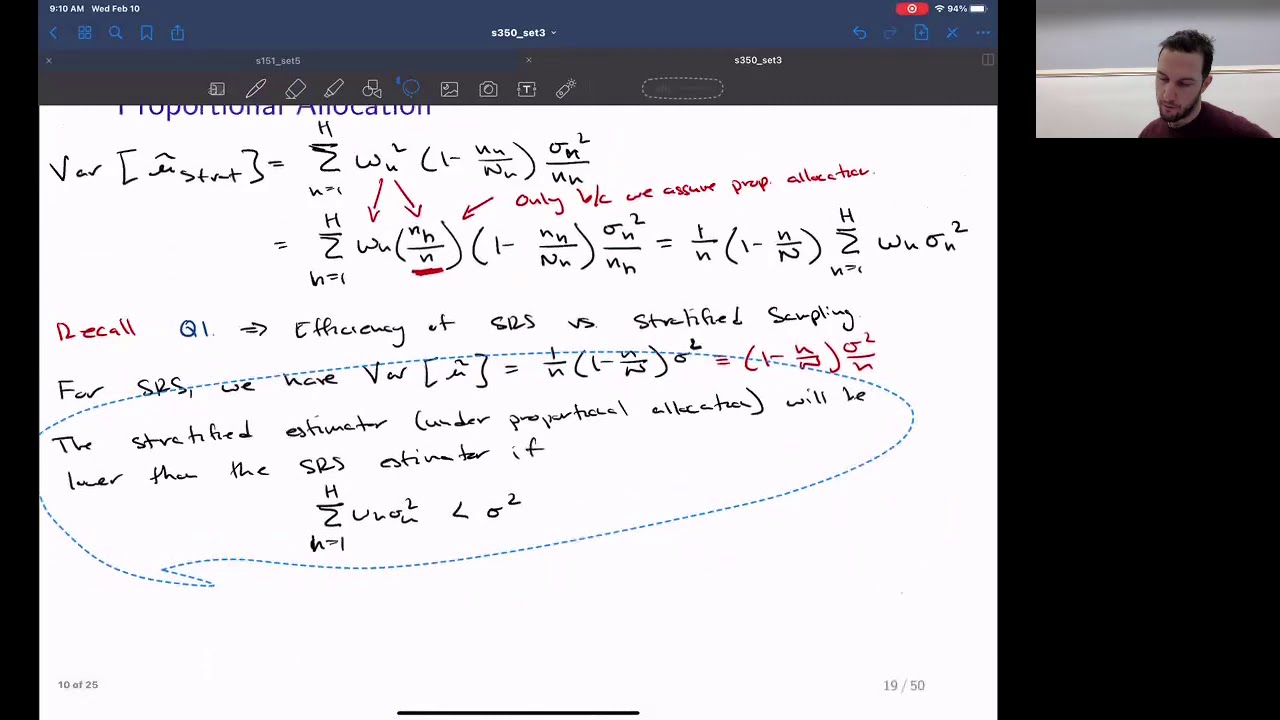 9:10 AM Wed Feb 10
94%
s350_set3
s151_set5
s350_set3
Proportional Allocation
Var [μ̃ strat] = Σ_{h=1}^{H} ω_h² (1 - n_h/N_h) σ_h²/n_h
Only b/c we assume prop. allocation.
= Σ_{h=1}^{H} ω_h (n_h/n) (1 - n_h/N_h) σ_h²/n_h = 1/n (1 - n/N) Σ_{h=1}^{H} ω_h σ_h²
Recall Q1. ⇒ Efficiency of SRS vs. Stratified Sampling.
For SRS, we have Var [μ̃] = 1/n (1 - n/N) σ² = (1 - n/N) σ²/n
The stratified estimator (under proportional allocation) will be
lower than the SRS estimator if
Σ_{h=1}^{H} ω_h σ_h² < σ²
10 of 25
19 / 50